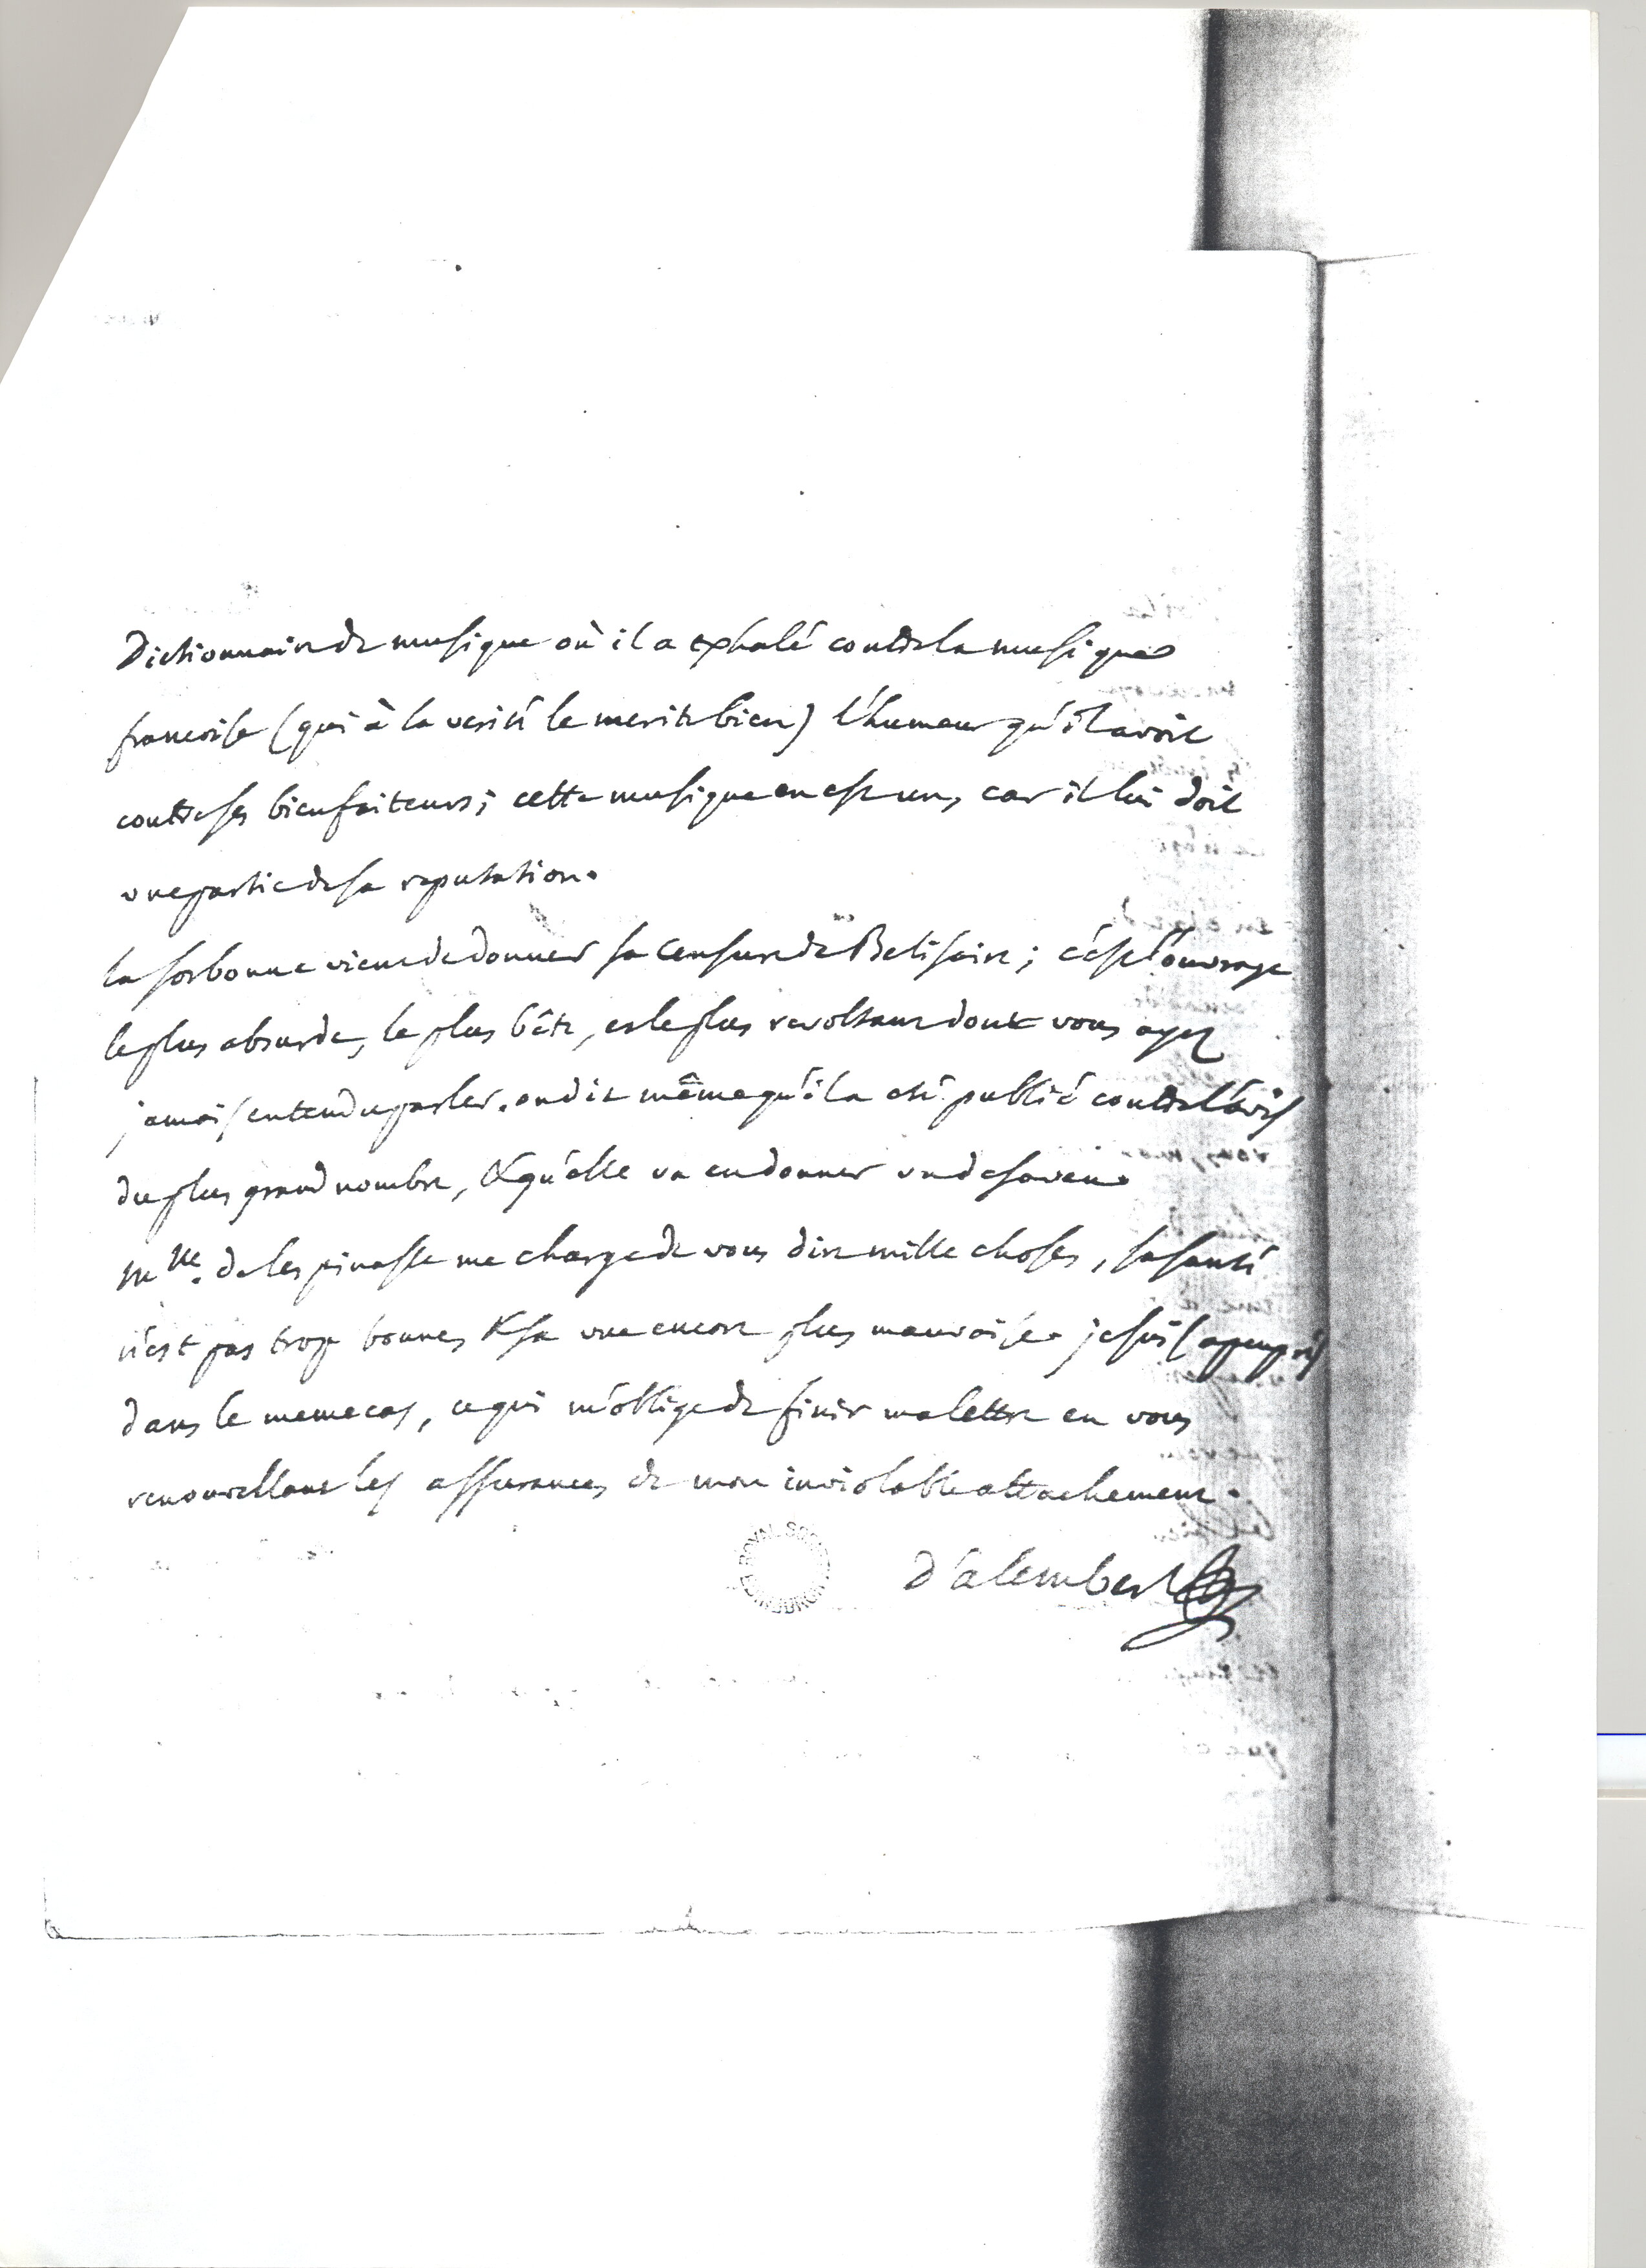 Dictionnaire de musique où il a exhalé contre la musique
francoise (qui à la verité le merite bien) l'humeur qu'il avoit
contre ses bienfaiteurs; cette musique en est un, car il lui doit
une partie de sa reputation.
la sorbonne vient de donner sa censure de Belisaire; c'est l'ouvrage
le plus absurde, le plus bête, et le plus revoltant dont vous ayez
jamais entendu parler. on dit même qu'il a eté publié contre l'avis
du plus grand nombre, & qu'elle va en donner un desaveu.
Mlle. de lespinasse me charge de vous dire mille choses, sa santé
n'est pas trop bonne, & sa vue encore plus mauvaise. je suis (a peu près)
dans le meme cas, ce qui m'oblige de finir ma lettre en vous
renouvellant les assurances de mon inviolable attachement.
d'alembert
ROYAL SOC
EDINBURGH